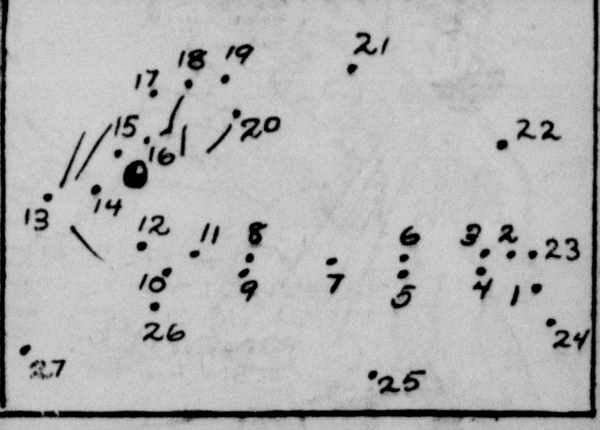 18 19 21
17
15 20 22
16
13 14
12 11 8 6 3 2 23
10 9 7 5 4 1
26 24
27 25